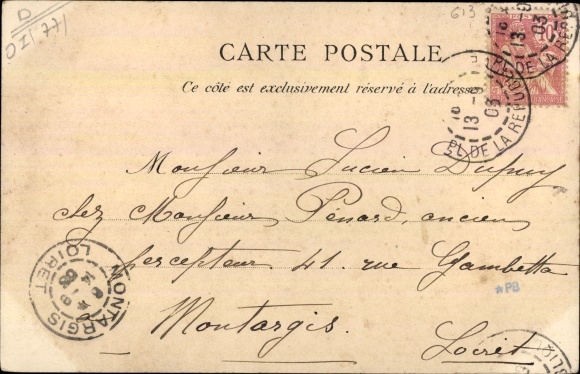 D
OI/771
613
CARTE POSTALE
Ce côté est exclusivement réservé à l'adresse
PL. DE LA RÉPUBLIQUE
13
03
PL. DE LA RÉPUBLIQUE
13
03
Monsieur Lucien Dupuy
chez Monsieur Pénard, ancien
percepteur. 41. rue Gambetta
*PB
Montargis.
Loiret
MONTARGIS
LOIRET